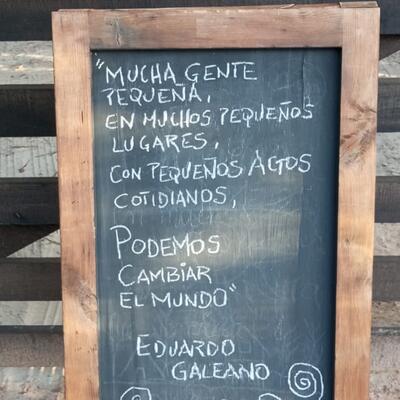 "MUCHA GENTE
PEQUEÑA,
EN MUCHOS PEQUEÑOS
LUGARES,
CON PEQUEÑOS ACTOS
COTIDIANOS,
PODEMOS
CAMBIAR
EL MUNDO"
EDUARDO
GALEANO